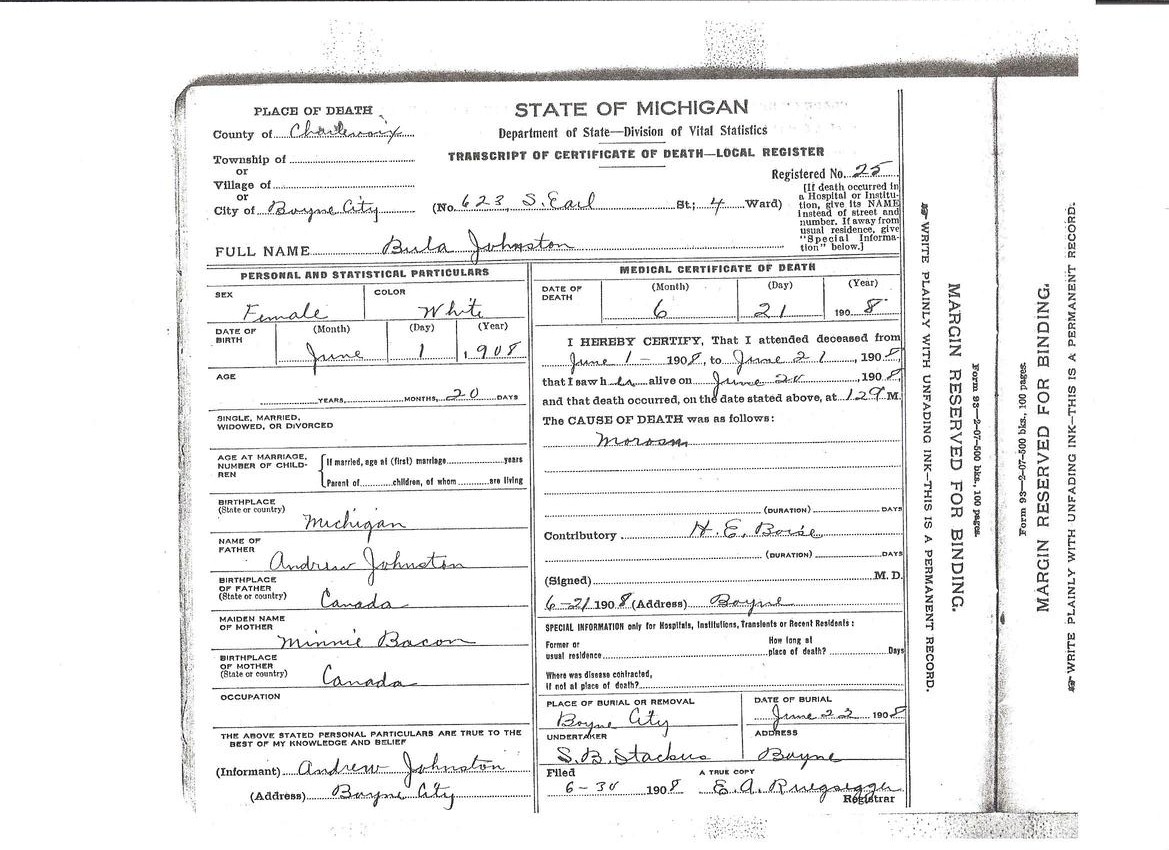 PLACE OF DEATH
County of Charlevoix
Township of
or
Village of
or
City of Boyne City
STATE OF MICHIGAN
Department of State—Division of Vital Statistics
TRANSCRIPT OF CERTIFICATE OF DEATH—LOCAL REGISTER
Registered No. 25
(No. 623, S. Earl St.; 4 Ward)
[If death occurred in
a Hospital or Institu-
tion, give its NAME
instead of street and
number. If away from
usual residence, give
"Special Informa-
tion" below.]
FULL NAME Bula Johnston
PERSONAL AND STATISTICAL PARTICULARS
SEX
Female
COLOR
White
DATE OF
BIRTH
(Month) (Day) (Year)
June 1, 1908
AGE
YEARS, MONTHS, 20 DAYS
SINGLE, MARRIED,
WIDOWED, OR DIVORCED
AGE AT MARRIAGE,
NUMBER OF CHILD-
REN
If married, age at (first) marriage years
Parent of children, of whom are living
BIRTHPLACE
(State or country)
Michigan
NAME OF
FATHER
Andrew Johnston
BIRTHPLACE
OF FATHER
(State or country)
Canada
MAIDEN NAME
OF MOTHER
Minnie Bacon
BIRTHPLACE
OF MOTHER
(State or country)
Canada
OCCUPATION
THE ABOVE STATED PERSONAL PARTICULARS ARE TRUE TO THE
BEST OF MY KNOWLEDGE AND BELIEF
(Informant) Andrew Johnston
(Address) Boyne City
MEDICAL CERTIFICATE OF DEATH
DATE OF
DEATH
(Month) (Day) (Year)
6 21 1908
I HEREBY CERTIFY, That I attended deceased from
June 1 - 1908, to June 21, 1908,
that I saw h alive on June, 1908,
and that death occurred, on the date stated above, at M.
The CAUSE OF DEATH was as follows:
(DURATION) DAYS
Contributory H. E. Boise
(DURATION) DAYS
(Signed) M. D.
6-21 1908 (Address) Boyne
SPECIAL INFORMATION only for Hospitals, Institutions, Transients or Recent Residents:
Former or
usual residence
How long at
place of death? Days
Where was disease contracted,
if not at place of death?
PLACE OF BURIAL OR REMOVAL
Boyne City
DATE OF BURIAL
June 23 1908
UNDERTAKER
S. B. Stackus
ADDRESS
Boyne
Filed
6-30 1908
A TRUE COPY
E. A.
Registrar
☞ WRITE PLAINLY WITH UNFADING INK—THIS IS A PERMANENT RECORD.
MARGIN RESERVED FOR BINDING.
Form 93—2-07-500 bks., 100 pages.
Form 93—2-07-500 bks., 100 pages.
MARGIN RESERVED FOR BINDING.
☞ WRITE PLAINLY WITH UNFADING INK—THIS IS A PERMANENT RECORD.